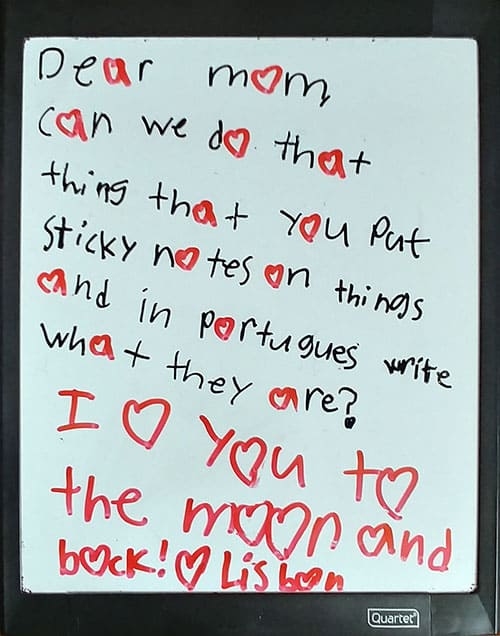 Dear mom
can we do that
thing that you put
sticky notes on things
and in portugues write
what they are?
I ♡ you to
the moon and
back! ♡ Lisbon
Quartet